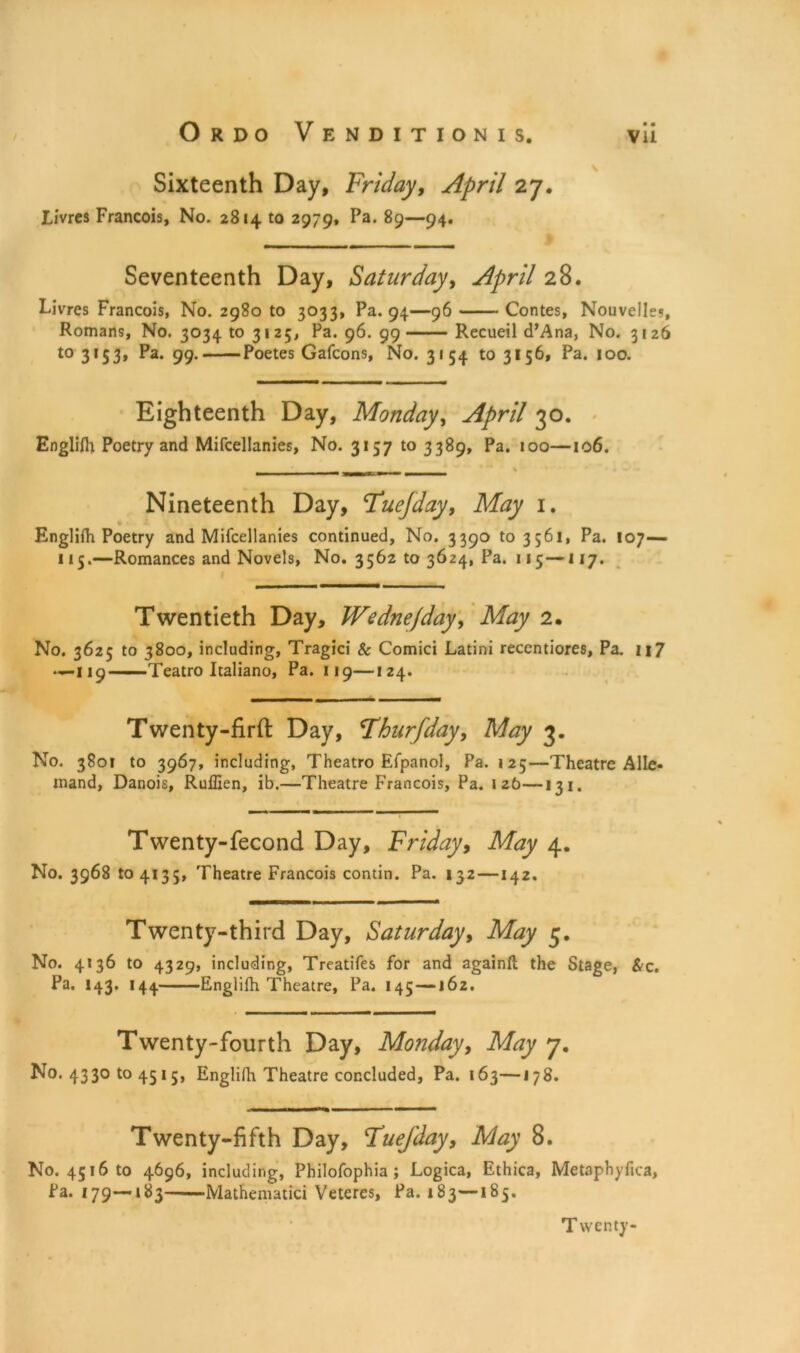 Ordo Venditionis. vii
Sixteenth Day, Friday, April 27.
Livres Francois, No. 2814 to 2979, Pa. 89—94.
Seventeenth Day, Saturday, April 28.
Livres Francois, No. 2980 to 3033, Pa. 94—96 —— Contes, Nouvelles,
Romans, No. 3034 to 3125, Pa. 96. 99 —— Recueil d'Ana, No. 3126
to 3153, Pa. 99. —— Poetes Gaſcons, No. 3154 to 3156, Pa. 100.
Eighteenth Day, Monday, April 30.
Engliſh Poetry and Miſcellanies, No. 3157 to 3389, Pa. 100—106.
Nineteenth Day, Tueſday, May 1.
Engliſh Poetry and Miſcellanies continued, No. 3390 to 3561, Pa. 107—
115.—Romances and Novels, No. 3562 to 3624, Pa. 115—117.
Twentieth Day, Wedneſday, May 2.
No. 3625 to 3800, including, Tragici & Comici Latini recentiores, Pa. 117
—119 —— Teatro Italiano, Pa. 119—124.
Twenty-firſt Day, Thurſday, May 3.
No. 3801 to 3967, including, Theatro Eſpanol, Pa. 125—Theatre Alle-
mand, Danois, Ruſſien, ib.—Theatre Francois, Pa. 126—131.
Twenty-ſecond Day, Friday, May 4.
No. 3968 to 4135, Theatre Francois contin. Pa. 132—142.
Twenty-third Day, Saturday, May 5.
No. 4136 to 4329, including, Treatiſes for and againſt the Stage, &c.
Pa. 143. 144 —— Engliſh Theatre, Pa. 145—162.
Twenty-fourth Day, Monday, May 7.
No. 4330 to 4515, Engliſh Theatre concluded, Pa. 163—178.
Twenty-fifth Day, Tueſday, May 8.
No. 4516 to 4696, including, Philoſophia; Logica, Ethica, Metaphyſica,
Pa. 179—183 —— Mathematici Veteres, Pa. 183—185.
Twenty-